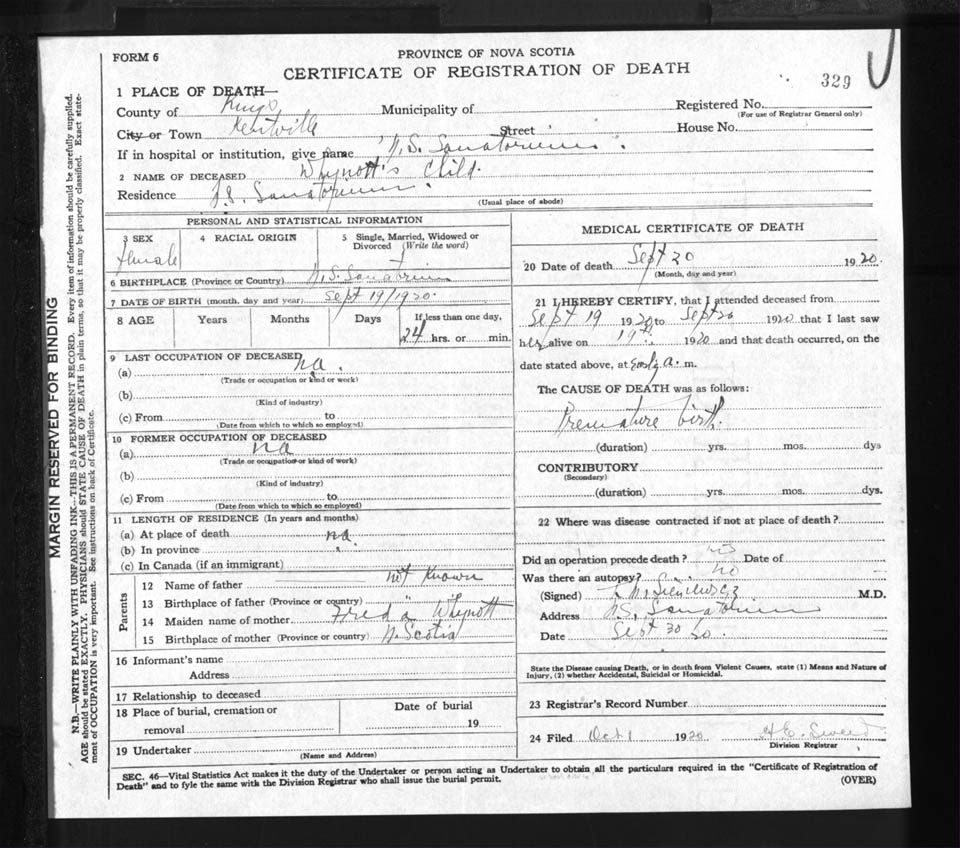 FORM 6
PROVINCE OF NOVA SCOTIA
CERTIFICATE OF REGISTRATION OF DEATH
329
1 PLACE OF DEATH—
County of Kings Municipality of Registered No.
(For use of Registrar General only)
City or Town Kentville Street House No.
If in hospital or institution, give name N.S. Sanatorium.
2 NAME OF DECEASED Whynott's Child.
Residence N.S. Sanatorium.
(Usual place of abode)
PERSONAL AND STATISTICAL INFORMATION
3 SEX 4 RACIAL ORIGIN 5 Single, Married, Widowed or Divorced (Write the word)
female
6 BIRTHPLACE (Province or Country) N.S. Sanatorium
7 DATE OF BIRTH (month, day and year) Sept 19/1920.
8 AGE Years Months Days If less than one day, 24 hrs. or min.
9 LAST OCCUPATION OF DECEASED
(a) na.
(Trade or occupation or kind or work)
(b)
(Kind of industry)
(c) From to
(Date from which to which so employed)
10 FORMER OCCUPATION OF DECEASED
(a) na
(Trade or occupation or kind of work)
(b)
(Kind of industry)
(c) From to
(Date from which to which so employed)
11 LENGTH OF RESIDENCE (In years and months)
(a) At place of death na
(b) In province
(c) In Canada (if an immigrant)
Parents
12 Name of father not Known
13 Birthplace of father (Province or country)
14 Maiden name of mother Whynott
15 Birthplace of mother (Province or country) N. Scotia
16 Informant's name
Address
17 Relationship to deceased
18 Place of burial, cremation or removal Date of burial 19
19 Undertaker
(Name and Address)
MEDICAL CERTIFICATE OF DEATH
20 Date of death Sept 20 1920.
(Month, day and year)
21 I HEREBY CERTIFY, that I attended deceased from
Sept 19 1920 to Sept 20 1920 that I last saw
her alive on 19th. 1920 and that death occurred, on the
date stated above, at early a. m.
The CAUSE OF DEATH was as follows:
Premature birth.
(duration) yrs. mos. dys
CONTRIBUTORY
(Secondary)
(duration) yrs. mos. dys.
22 Where was disease contracted if not at place of death?
Did an operation precede death? no Date of
Was there an autopsy? no
(Signed) M.D.
Address N.S. Sanatorium
Date Sept 30 20.
State the Disease causing Death, or in death from Violent Causes, state (1) Means and Nature of
Injury, (2) whether Accidental, Suicidal or Homicidal.
23 Registrar's Record Number
24 Filed Oct 1 1920
Division Registrar
SEC. 46—Vital Statistics Act makes it the duty of the Undertaker or person acting as Undertaker to obtain all the particulars required in the "Certificate of Registration of
Death" and to fyle the same with the Division Registrar who shall issue the burial permit.
(OVER)
MARGIN RESERVED FOR BINDING
N.B.—WRITE PLAINLY WITH UNFADING INK—THIS IS A PERMANENT RECORD. Every item of information should be carefully supplied.
AGE should be stated EXACTLY. PHYSICIANS should STATE CAUSE OF DEATH in plain terms, so that it may be properly classified. Exact state-
ment of OCCUPATION is very important. See instructions on back of Certificate.